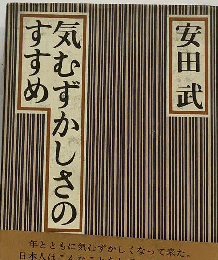 安田 武
気むずかしさの
すすめ
年とともに気むずかしくなって来た。
日本人は